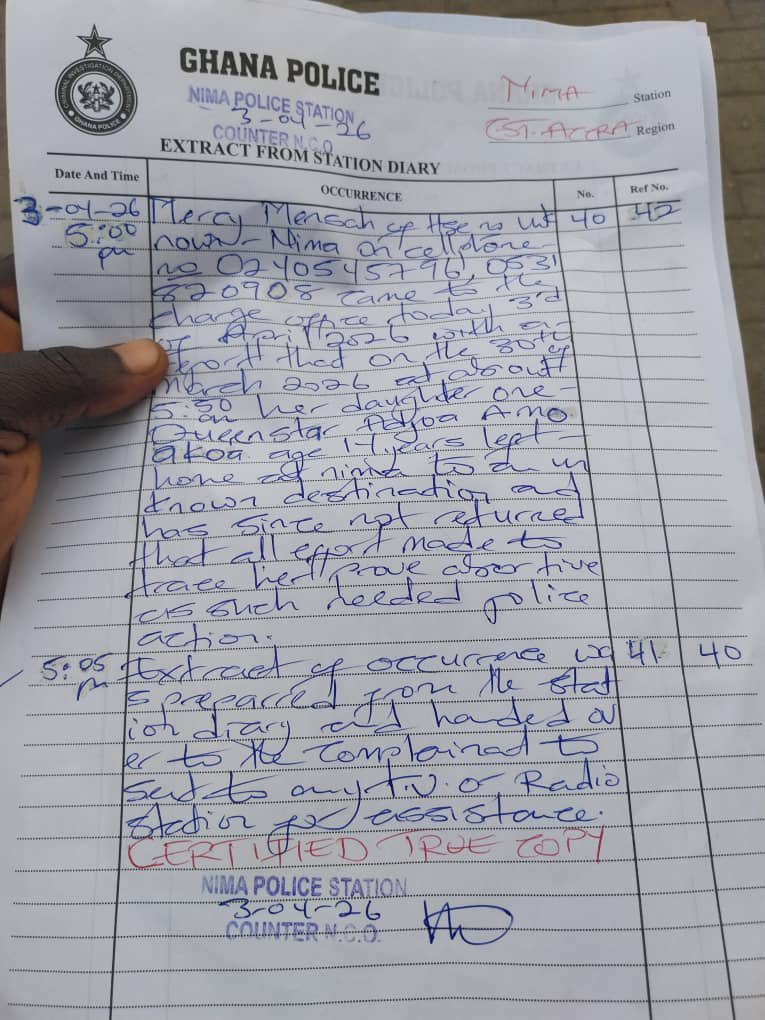 CRIMINAL INVESTIGATION DEPARTMENT
GHANA POLICE
GHANA POLICE
NIMA Station
NIMA POLICE STATION
3-04-26
COUNTER N.C.O.
Region
EXTRACT FROM STATION DIARY
Date And Time OCCURRENCE No. Ref No.
3-04-26 Mercy Mensah of Hse no un 40 42
5:00 nown - Nima on cellphone
pm no 0240545796, 0531
820908 came to the
charge office today 3rd
of April 2026 with a
report that on the 30th of
march 2026 at about
5:30 her daughter one -
Queenstar Adjoa Amo
akoa age 17 years left -
home at nima to an un
known destination and
has since not returned
that all effort made to
trace her prove abortive
as such needed police
action.
5:05 Extract of occurrence wa 41 40
pm s prepared from the stat
ion diary and handed ov
er to the complainant to
sent to any T.V. or Radio
station for assistance.
CERTIFIED TRUE COPY
NIMA POLICE STATION
3-04-26
COUNTER N.C.O.